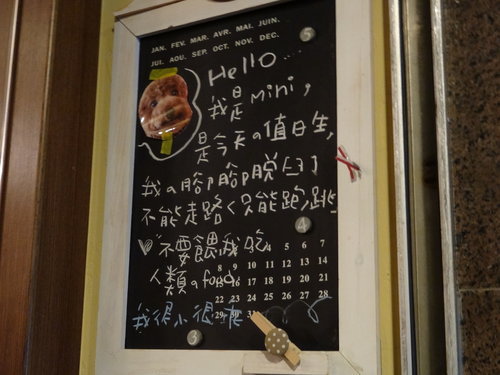 JAN. FEV. MAR. AVR. MAI. JUIN.
JUI. AOU. SEP. OCT. NOV. DEC.
5
Hello...
我是mini,
是今天の值日生,
我の腳腳脫臼了
不能走路く只能跑,跳
4
不要餵我吃
4 5 6 7
人類のfood
8 9 10 11 12 13 14
16 17 18 19 20 21
22 23 24 25 26 27 28
29 30 31
我很小很
3